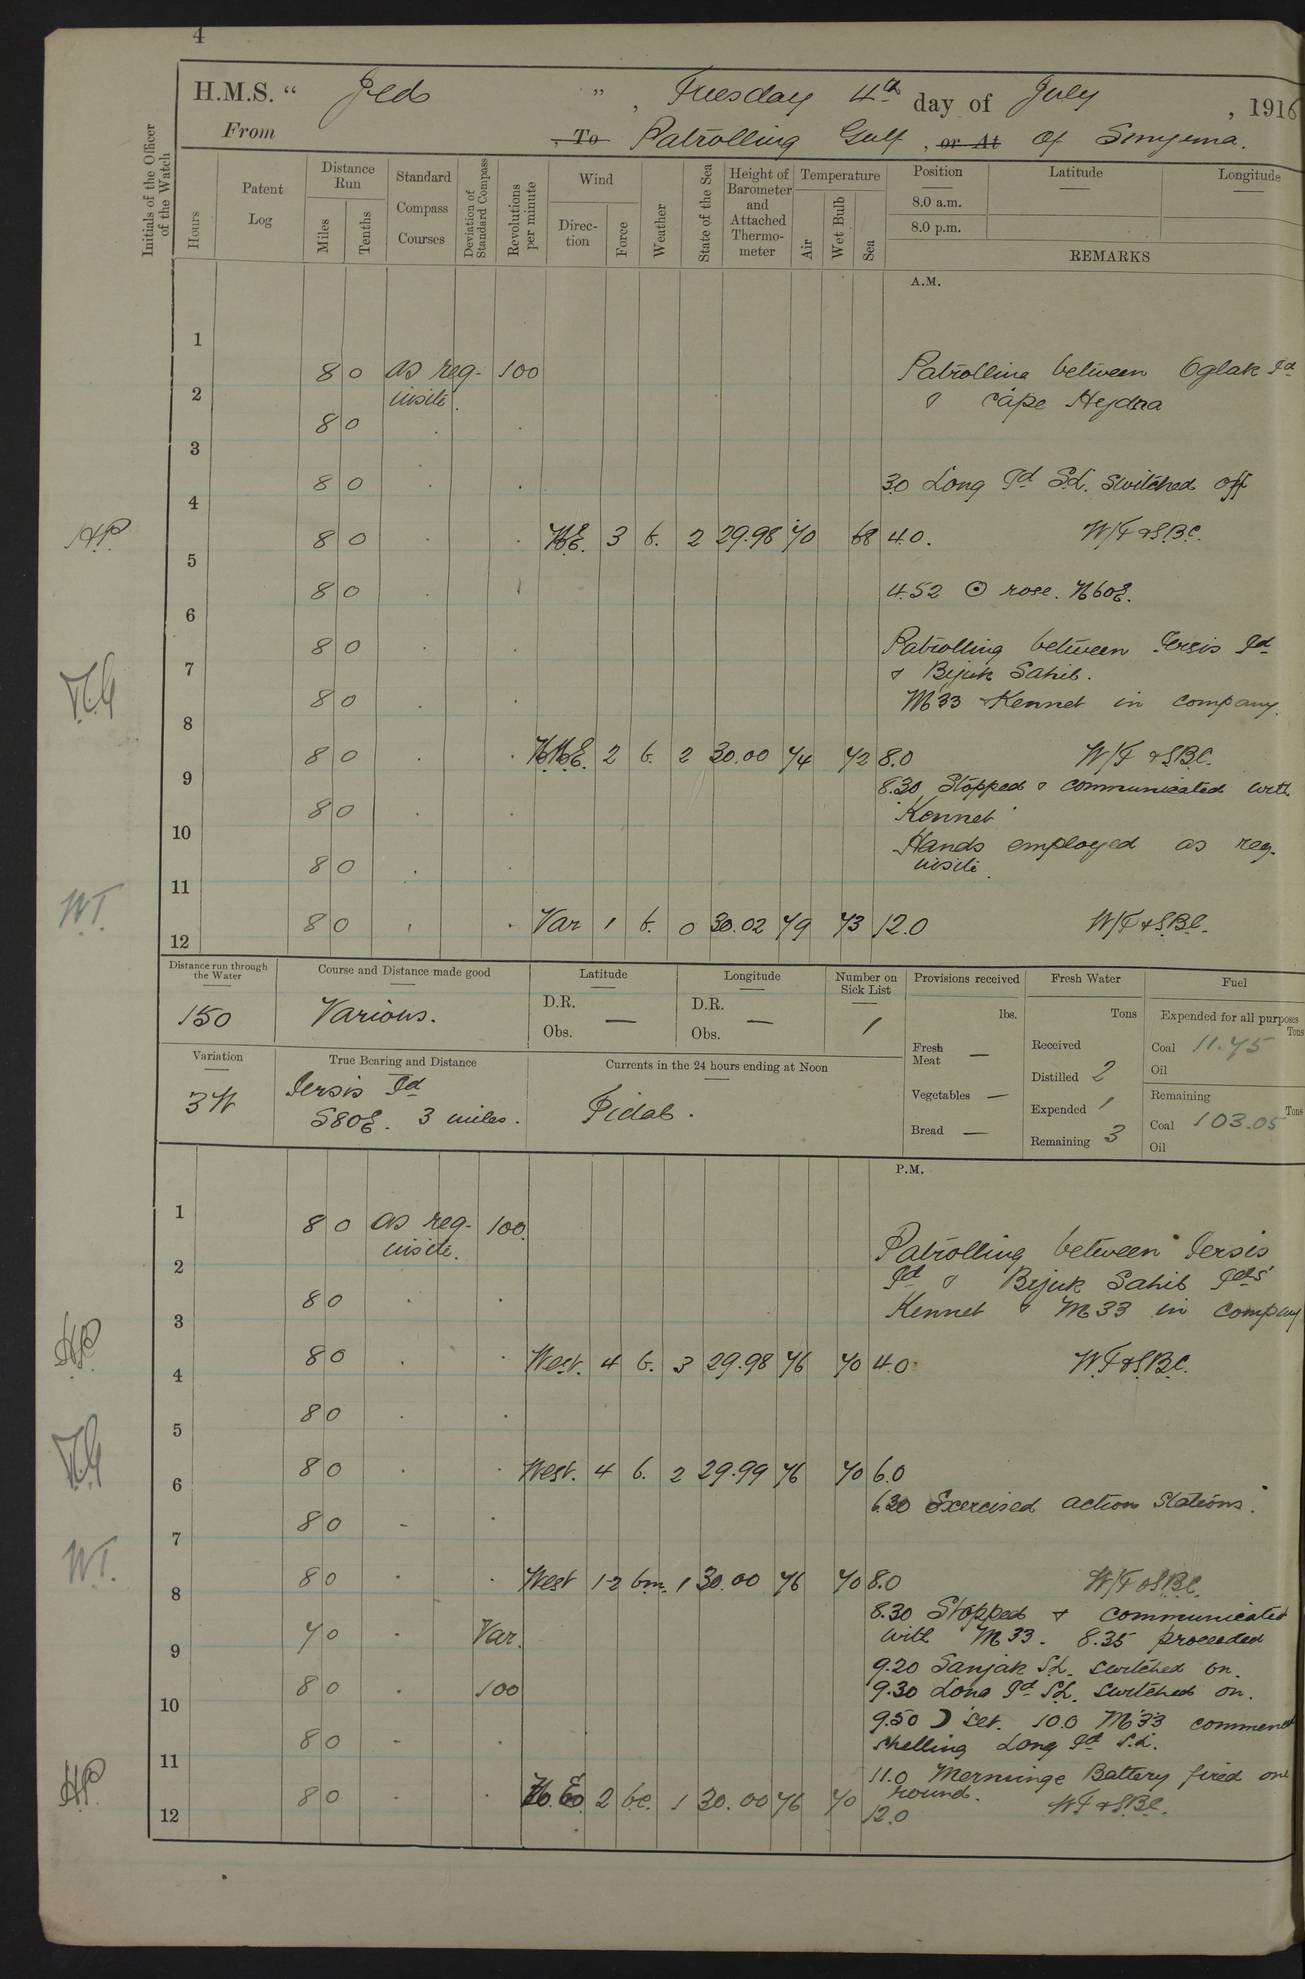 4
H.M.S. " Jed " , Tuesday 4th day of July , 1916
From , To Patrolling Gulf , or At Of Smyrna.
Initials of the Officer of the Watch
Hours
Patent Log
Distance Run
Miles
Tenths
Standard Compass Courses
Deviation of Standard Compass
Revolutions per minute
Wind
Direction
Force
Weather
State of the Sea
Height of Barometer and Attached Thermometer
Temperature
Air
Wet Bulb
Sea
Position Latitude Longitude
8.0 a.m.
8.0 p.m.
REMARKS
A.M.
1
8 0 as req- 100 Patrolling between Oglak Id
2 uisite. & Cape Hydra
8 0 . .
3
8 0 . . 3.0 Long Id S.L. switched off
4
H.P. 8 0 . . N.E. 3 b. 2 29.98 70 68 4.0. W/T & S.B.C.
5
8 0 . 4.52 ⊙ rose. N60E.
6
8 0 . . Patrolling between Iersis Id
7 & Bijuk Sahib.
8 0 . . M33 & Kennet in company.
8
8 0 . . N.N.E. 2 b. 2 30.00 74 72 8.0 W/T & S.B.C.
9 8.30 Stopped & communicated with
8 0 . . 'Kennet'
10 Hands employed as req-
8 0 . . uisite.
11
W.T. 8 0 . . Var 1 b. 0 30.02 79 73 12.0 W/T & S.B.C.
12
Distance run through the Water
150
Course and Distance made good
Various.
Latitude
D.R.
Obs. —
Longitude
D.R.
Obs. —
Number on Sick List
1
Provisions received
lbs.
Fresh Meat —
Vegetables —
Bread —
Fresh Water
Tons
Received
Distilled 2
Expended 1
Remaining 3
Fuel
Expended for all purposes
Tons
Coal 11.75
Oil
Remaining
Tons
Coal 103.05
Oil
Variation
3W
True Bearing and Distance
Iersis Id
S80E. 3 miles.
Currents in the 24 hours ending at Noon
Tidal.
P.M.
1
8 0 as req- 100
uisite. Patrolling between Iersis
2 Id & Bijuk Sahib Ids
8 0 . . Kennet & M33 in company
3
H.P. 8 0 . . West. 4 b. 3 29.98 76 70 4.0 W.T. & S.B.C.
4
8 0 . .
5
8 0 . . West. 4 b. 2 29.99 76 70 6.0
6 6.30 Exercised action stations.
8 0 - .
7
W.T. 8 0 . . West 1-2 bm. 1 30.00 76 70 8.0 W/T & S.B.C.
8 8.30 Stopped & communicated
7 0 . Var. with M33. 8.35 proceeded
9 9.20 Sanjak S.L. switched on.
8 0 . 100 9.30 Long Id S.L. switched on.
10 9.50 ☽ set. 10.0 M33 commenced
8 0 - . shelling Long Id S.L.
11 11.0 Merminge Battery fired one
H.P. 8 0 . . 2 bc. 1 30.00 76 70 round.
12 12.0 W.T & S.B.C.